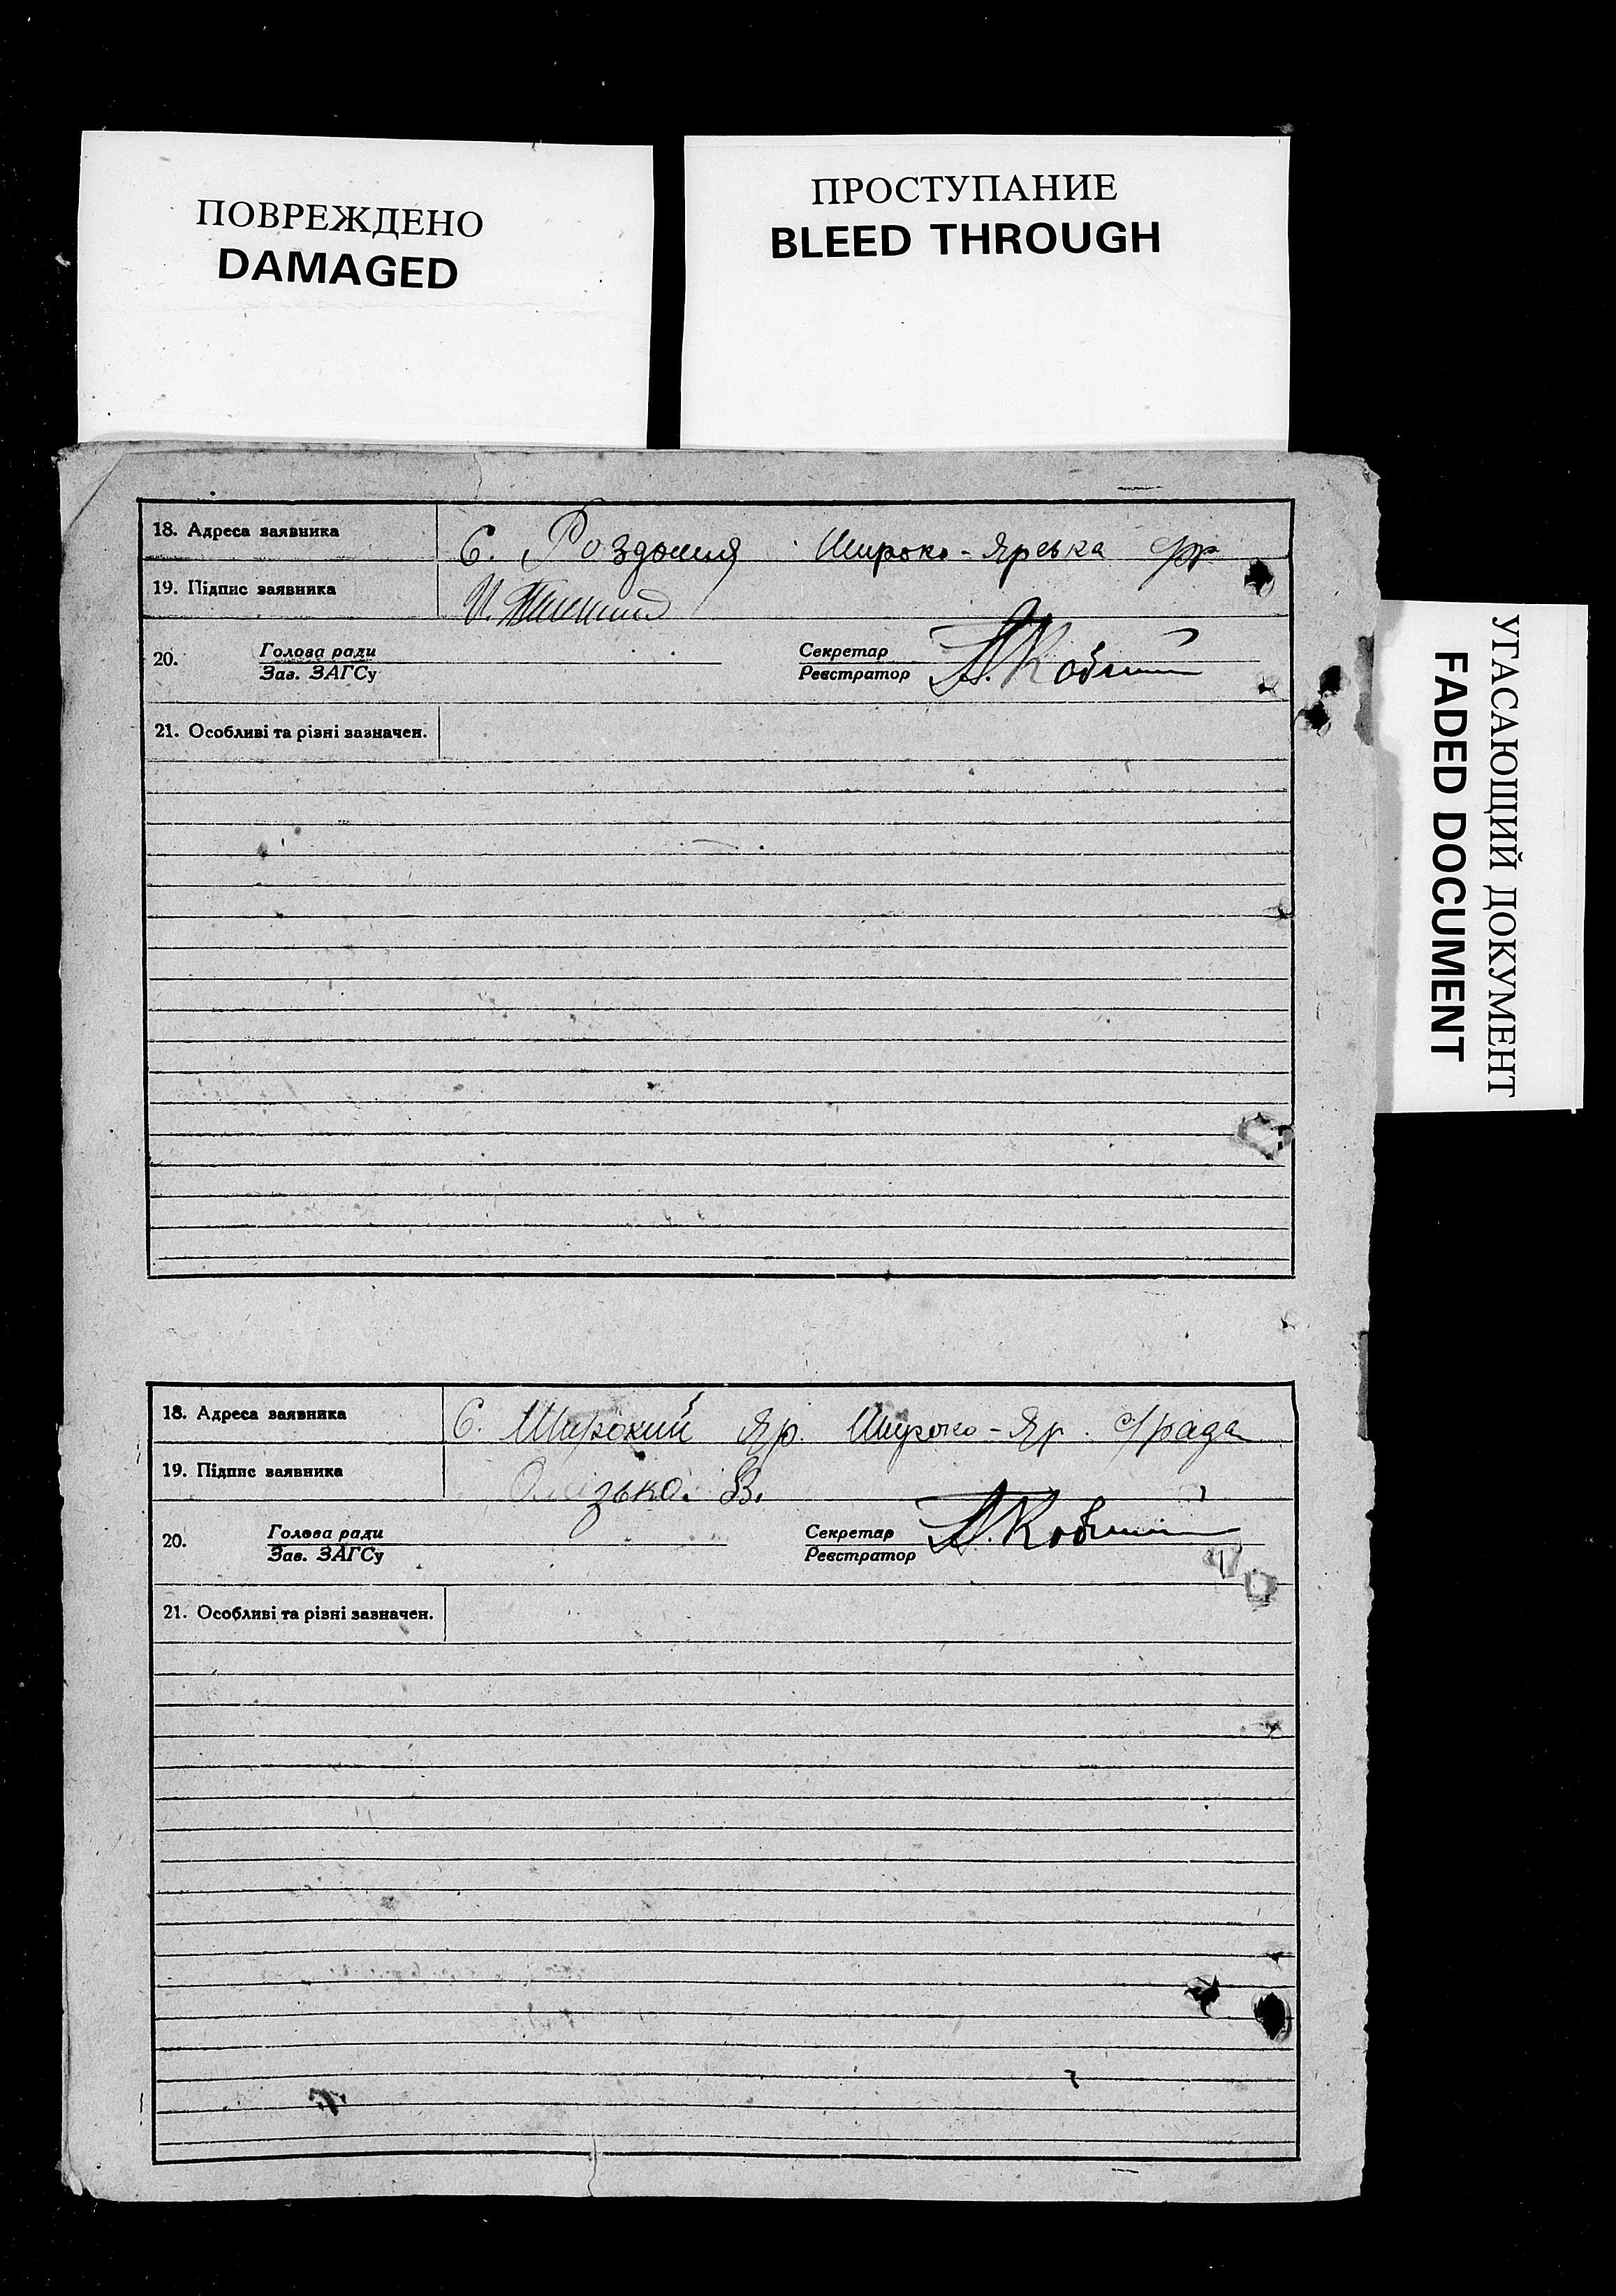 ПОВРЕЖДЕНО
DAMAGED
ПРОСТУПАНИЕ
BLEED THROUGH
УГАСАЮЩИЙ ДОКУМЕНТ
FADED DOCUMENT
18. Адреса заявника С. Роздолля Широко-Ярська с/р
19. Підпис заявника И.
20. Голова ради Секретар А.
Зав. ЗАГСу Реєстратор
21. Особливі та різні зазначен.
18. Адреса заявника С. Широкий Яр. Широко-Яр. с/рада
19. Підпис заявника В.
20. Голова ради Секретар А.
Зав. ЗАГСу Реєстратор
21. Особливі та різні зазначен.